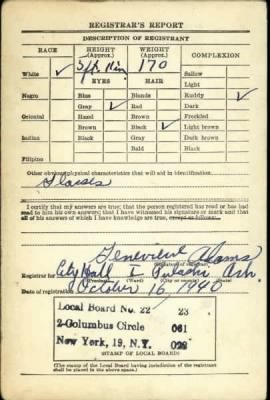 REGISTRAR'S REPORT
DESCRIPTION OF REGISTRANT
RACE HEIGHT (Approx.) WEIGHT (Approx.) COMPLEXION
White ✓ 170 Sallow
EYES HAIR Light
Negro Blue Blonde Ruddy ✓
Gray ✓ Red Dark
Oriental Hazel Brown Freckled
Brown Black ✓ Light brown
Indian Black Gray Dark brown
Bald Black
Filipino
Other obvious physical characteristics that will aid in identification
I certify that my answers are true; that the person registered has read or has had
read to him his own answers; that I have witnessed his signature or mark and that
all of his answers of which I have knowledge are true, except as follows:
Genevieve Adams
(Signature of registrar)
Registrar for City Hall 1 Ark.
(Precinct) (Ward) (City or county) (State)
Date of registration October 16, 1940
Local Board No. 22 23
2-Columbus Circle 061
New York, 19, N. Y. 026
(STAMP OF LOCAL BOARD)
(The stamp of the Local Board having jurisdiction of the registrant
shall be placed in the above space.)